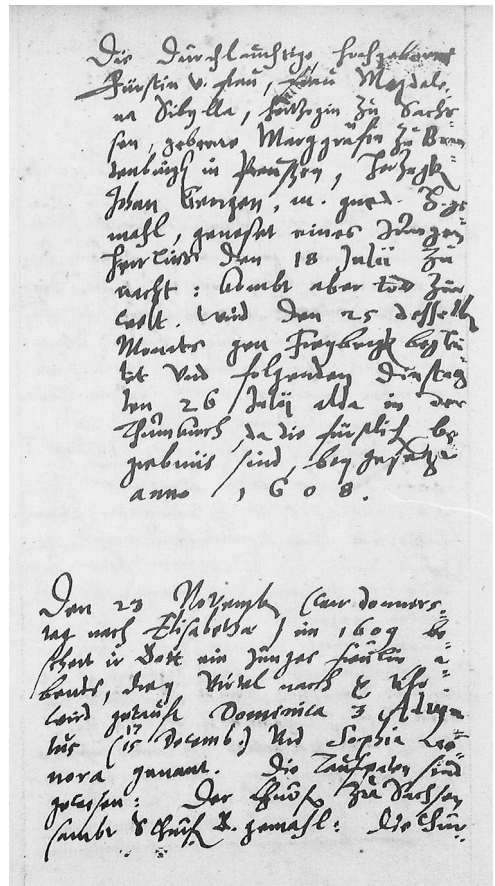 Die Durchlauchtige, hochgeborne
Fürstin v. frau, frau Magdale-
na Sibylla, hertzogin zu Sachs-
sen, geborne Marggräfin zu Bran-
denburgk in Preussen, hertzogk
Johan Georgen, m. gned. h. ge-
mahl, geneset eines Jungen
herrlins den 18 Julii zu
nacht: kombt aber tod zur
welt. Wird den 25 desselben
Monats gen Freybergk beglei-
tet Und folgenden Dinstag
den 26 Julij alda in der
Thumkirch, da die fürstlich be-
grebnüs sind, beygesetzt
anno 1608.
Den 23 Novemb (war donners-
tag nach Elisabethæ) im 1609 be-
schert ir Gott ein Junges freulin a-
bents, drey Virtel nach X Uhr.
wird getauft Dominica 3 Adven-
tus (17 Decemb.) Und Sophia Leo-
nora genant. Die Taufpaten sind
gewesen: Der Churf. zu Sachsen
sambt S. Churf. G. gemahl: Die Chur-